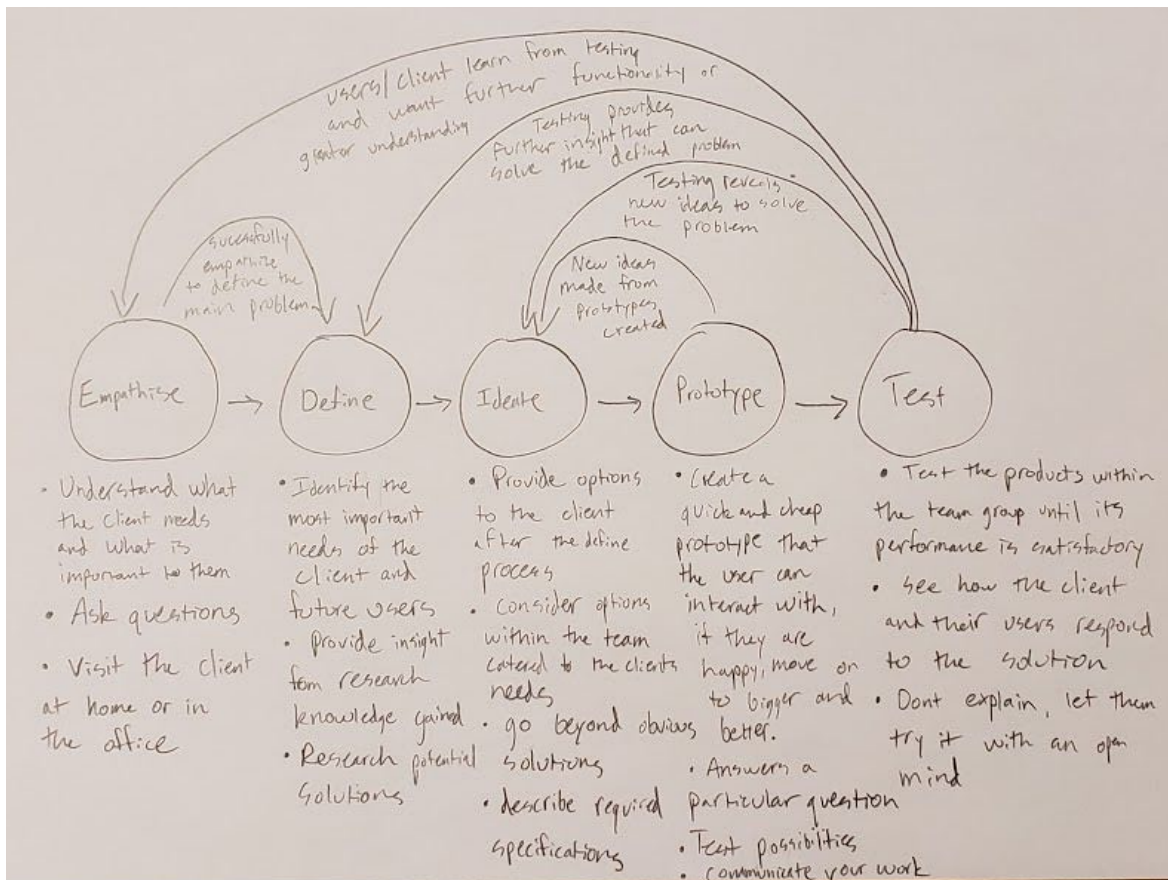 users/client learn from testing
and want further functionality or
greator understanding
Testing provides
further insight that can
solve the defined problem
Testing reveals
new ideas to solve
the problem
sucessfully
empathize
to define the
main problem
New ideas
made from
prototypes
created
Empathise
Define
Ideate
Prototype
Test
• Understand what
the client needs
and what is
important to them
• Ask questions
• Visit the client
at home or in
the office
• Identify the
most important
needs of the
client and
future users
• Provide insight
from research
knowledge gained
• Research potential
solutions
• Provide options
to the client
after the define
process
• Consider options
within the team
catered to the clients
needs
• go beyond obvious
solutions
• describe required
specifications
• Create a
quick and cheap
prototype that
the user can
interact with,
if they are
happy, move on
to bigger and
better.
• Answers a
particular question
• Test possibilities
• communicate your work
• Test the products within
the team group until its
performance is satisfactory
• See how the client
and their users respond
to the solution
• Dont explain, let them
try it with an open
mind